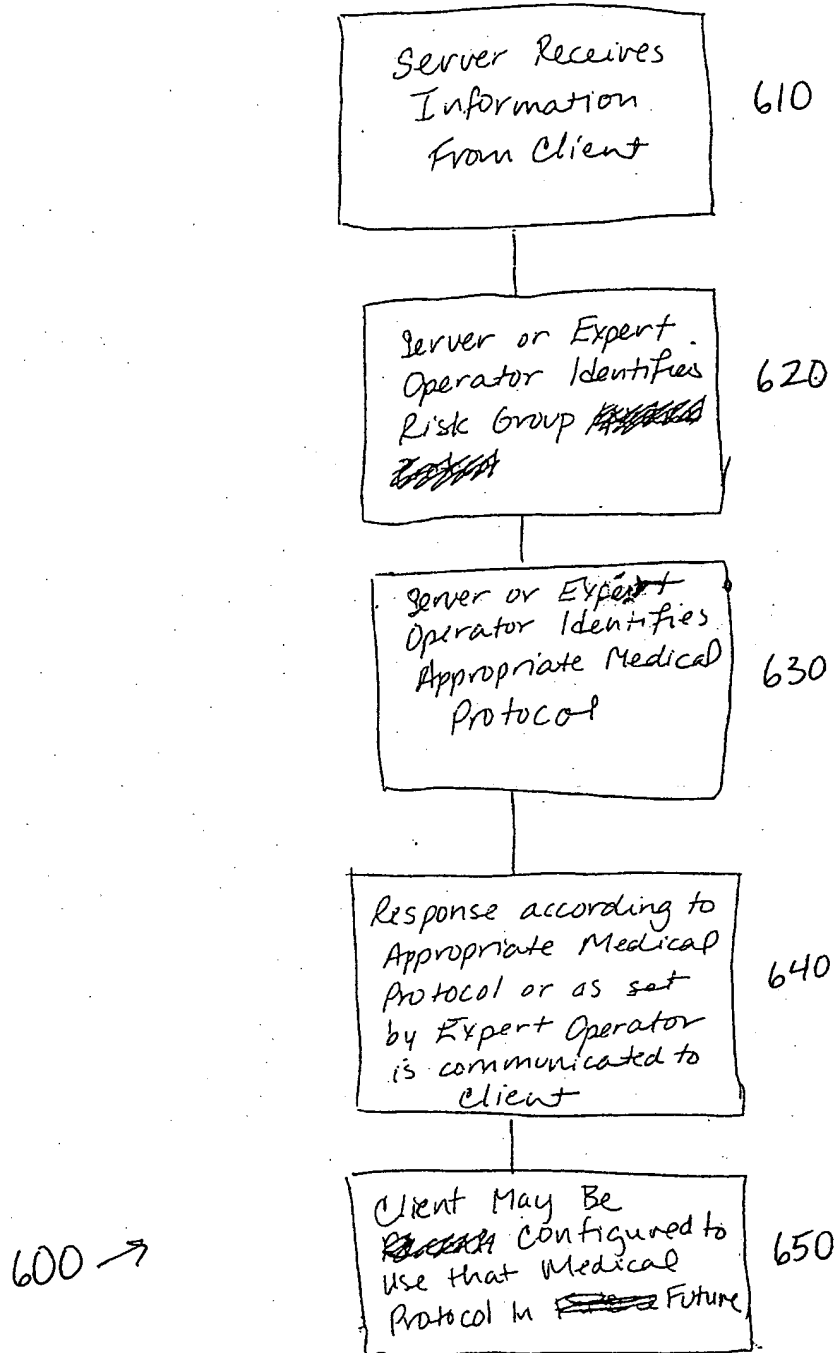 Server Receives
Information
From Client
610
Server or Expert
Operator Identifies
Risk Group
620
Server or Expert
Operator Identifies
Appropriate Medical
Protocol
630
Response according to
Appropriate Medical
Protocol or as set
by Expert Operator
is communicated to
Client
640
Client May Be
configured to
use that Medical
Protocol in Future
650
600